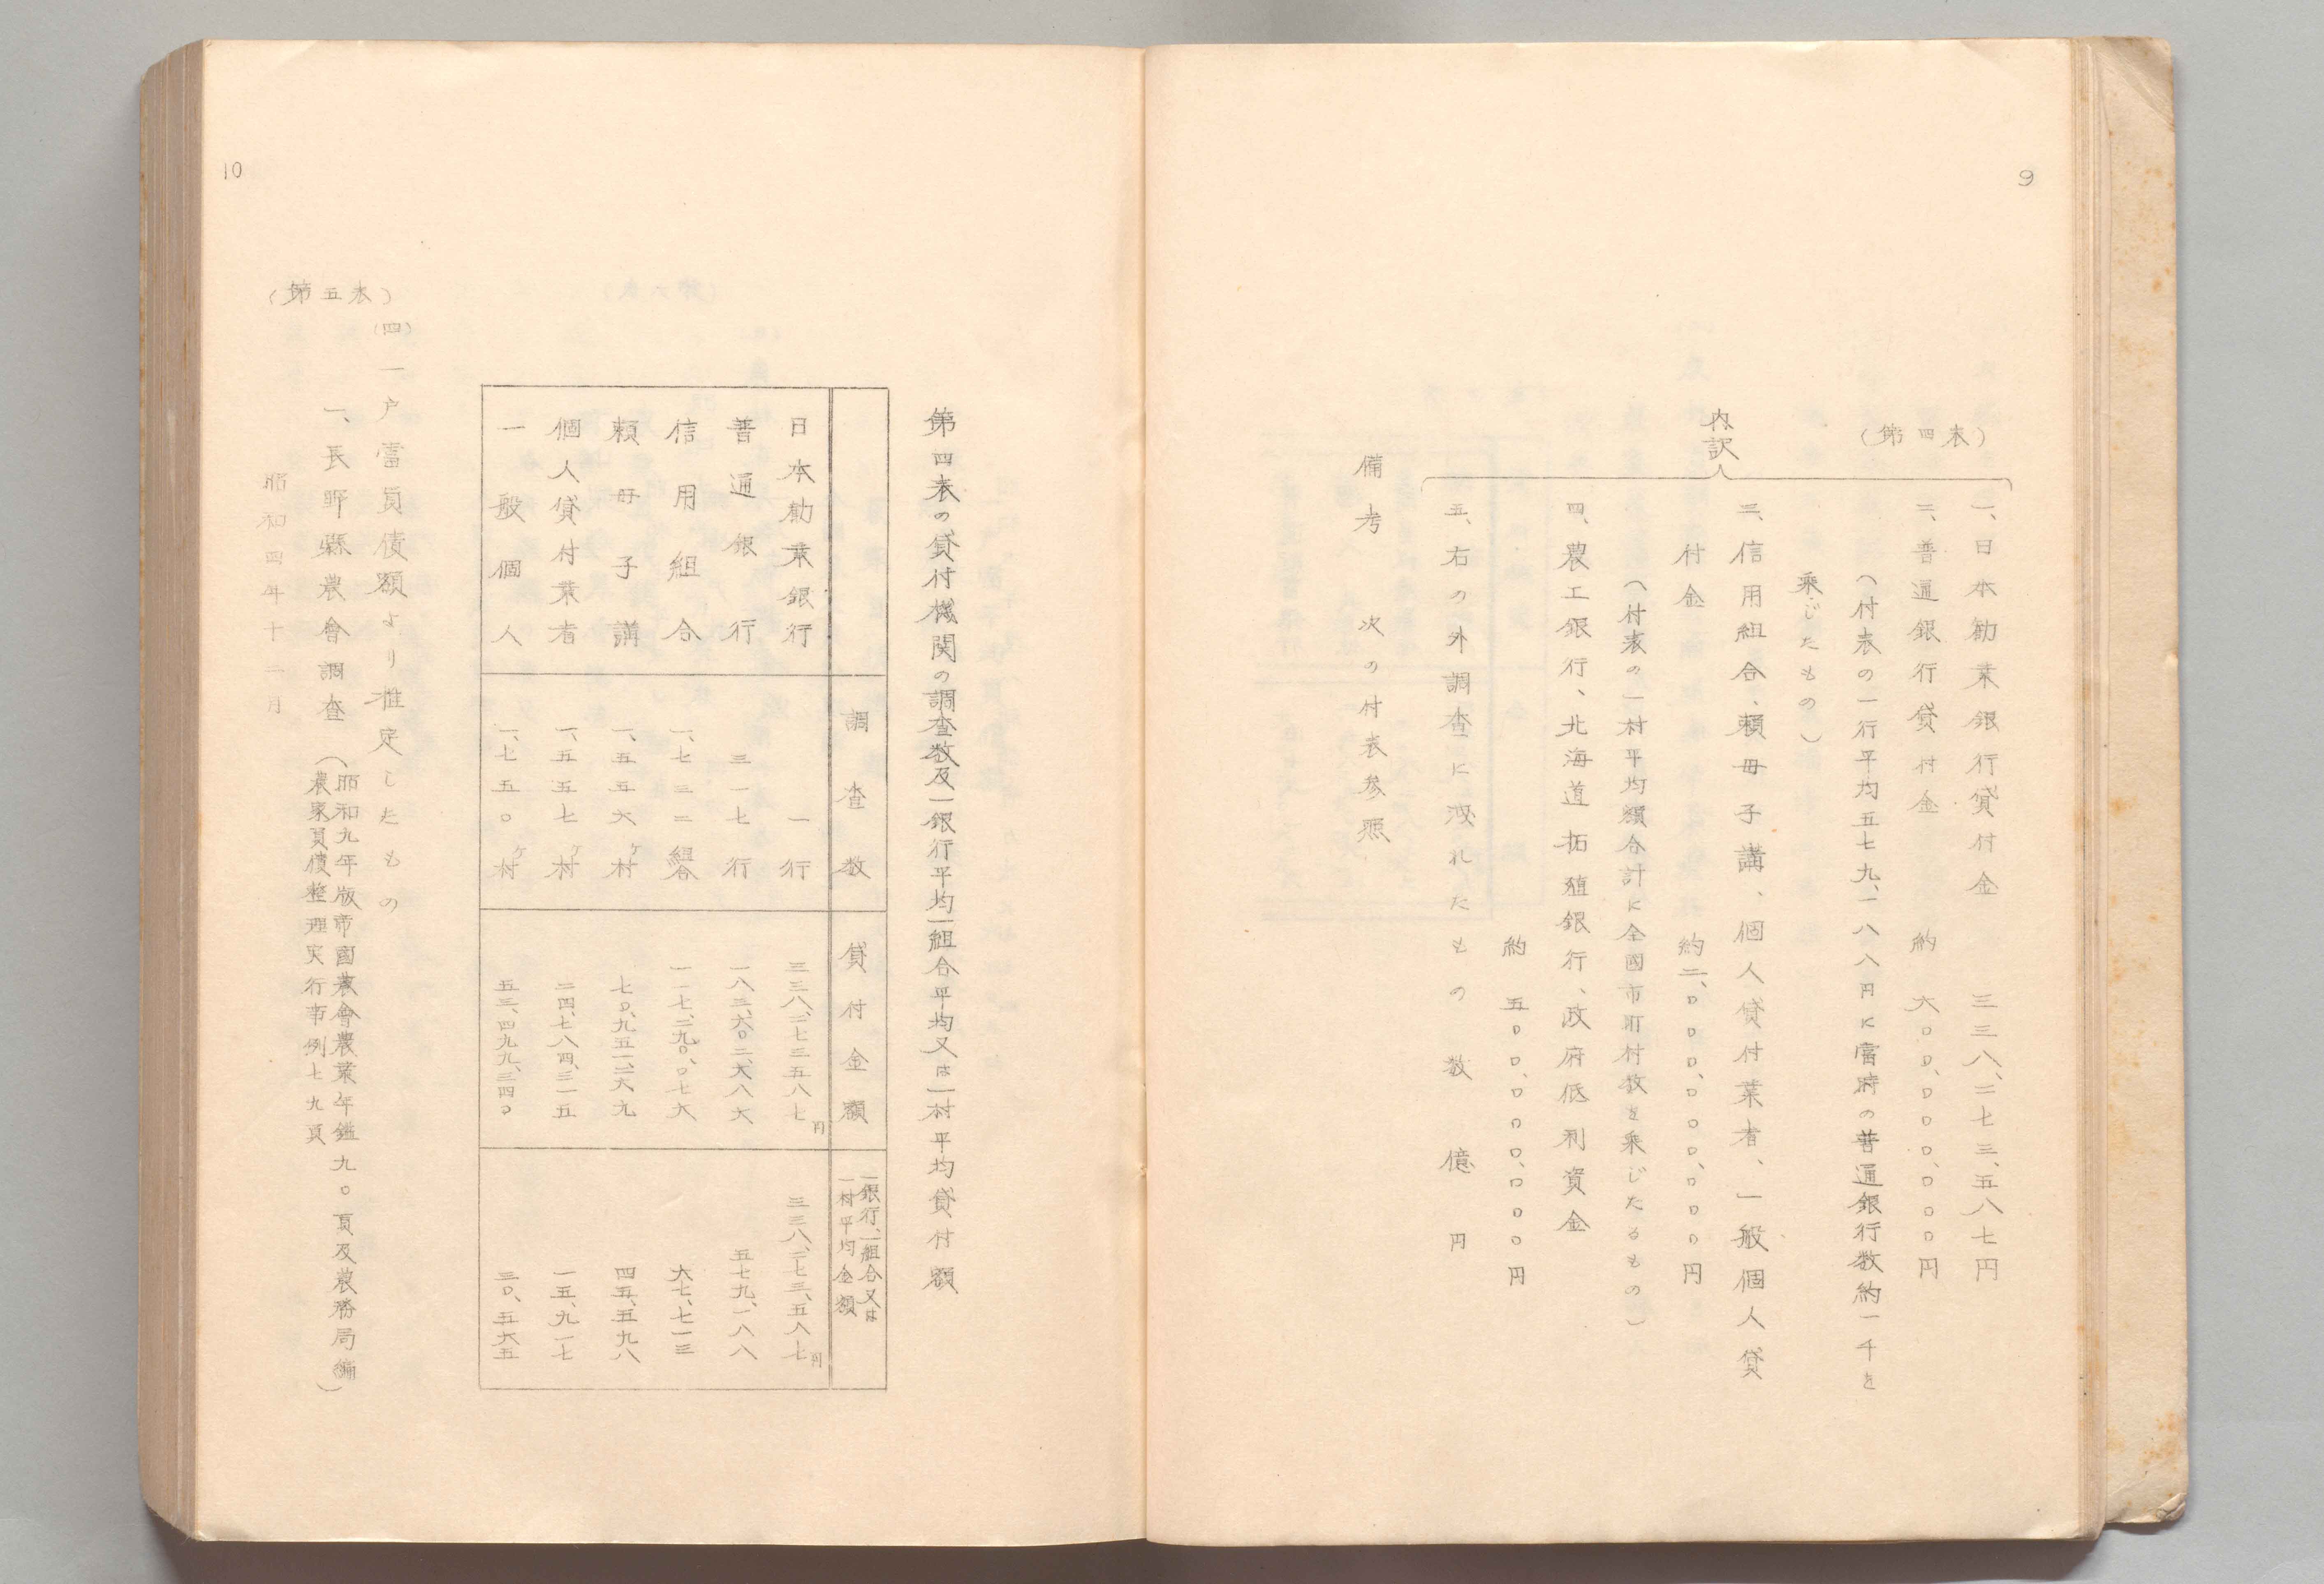 9
（第四表）
内訳
一、日本勧業銀行貸付金　三三八、二七三、五八七円
二、普通銀行貸付金　約　六〇〇、〇〇〇、〇〇〇円
（付表の一行平均五七九、一八八円に當時の普通銀行数約一千を
乗じたもの）
三、信用組合、頼母子講、個人貸付業者、一般個人貸
付金　約二、〇〇〇、〇〇〇、〇〇〇円
（付表の一村平均額合計に全國市町村数を乗じたるもの）
四、農工銀行、北海道拓殖銀行、政府低利資金
約　五〇〇、〇〇〇、〇〇〇円
五、右の外調査に洩れたもの　数億円
備考　次の付表参照
10
第四表の貸付機関の調査数及一銀行平均一組合平均又は一村平均貸付額
調査数　貸付金額　一銀行、一組合又は一村平均金額
日本勧業銀行　一行　三三八、二七三五八七円　三三八、二七三、五八七円
普通銀行　三一七行　一八三、六〇二、六八六　五七九、一八八
信用組合　一、七三二組合　一一七、二九〇、〇七六　六七、七一三
頼母子講　一、五五六ヶ村　七〇、九五一、二六九　四五、五九八
個人貸付業者　一、五五七ヶ村　二四、七八四、三一五　一五、九一七
一般個人　一、七五〇ヶ村　五三、四九九、三四〇　三〇、五六五
（第五表）
（四）一戸當負債額より推定したもの
一、長野縣農會調査（昭和九年版帝國農會農業年鑑九〇頁及農務局編
農家負債整理実行事例七九頁）
昭和四年十一月